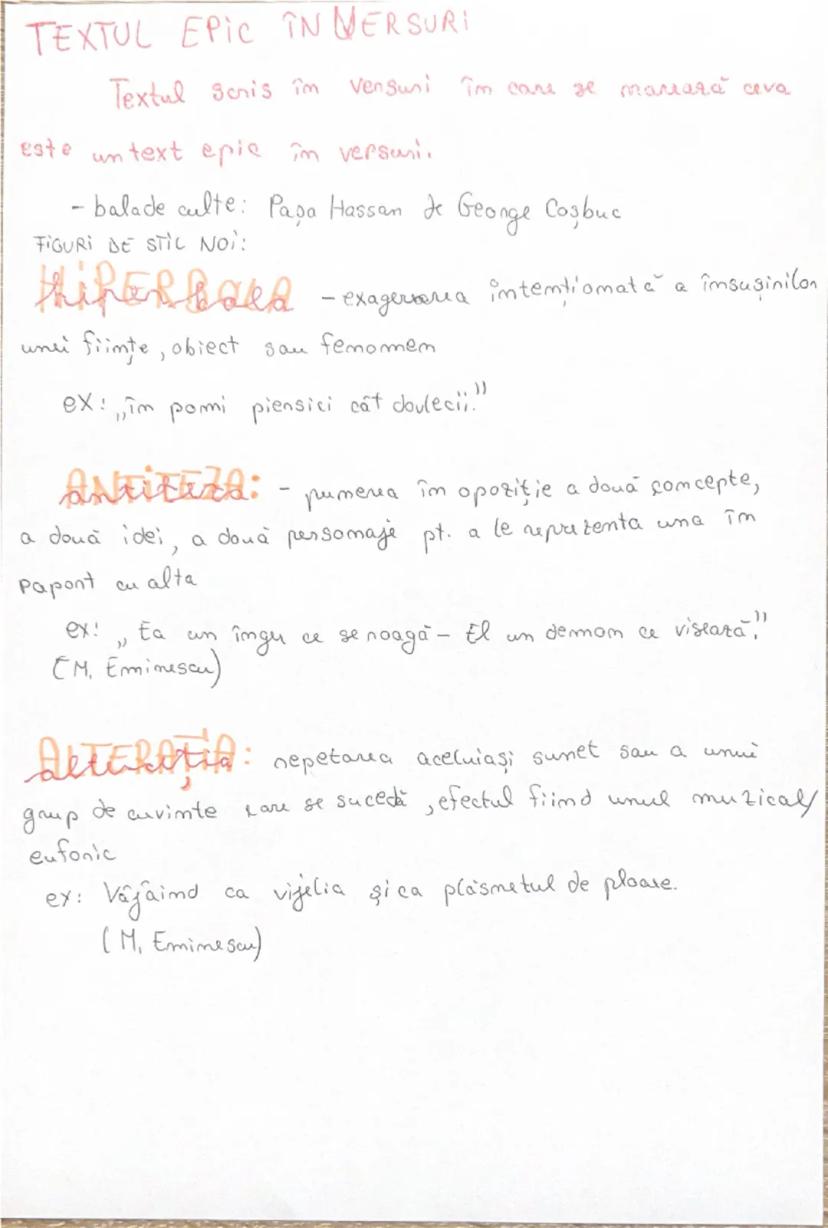 TEXTUL EPIC ÎN VERSURI
Textul scris în versuri în care se narează ceva
este un text epic în versuri.
- balade culte: Pașa Hassan de George Coșbuc
FIGURI DE STIL NOI:
HIPERBOLA hiperbola - exagerarea intenționată a însușirilor
unei ființe, obiect sau fenomen
ex: „în pomi piersici cât dovlecii."
ANTITEZA: antiteza - punerea în opoziție a două concepte,
a două idei, a două personaje pt. a le reprezenta una în
raport cu alta
ex: „Ea un înger ce se roagă - El un demon ce visează."
(M. Eminescu)
ALTERAȚIA: alterația repetarea aceluiași sunet sau a unui
grup de cuvinte care se sucedă, efectul fiind unul muzical/
eufonic
ex: Vâjâind ca vijelia și ca plesnetul de ploaie.
(M. Eminescu)